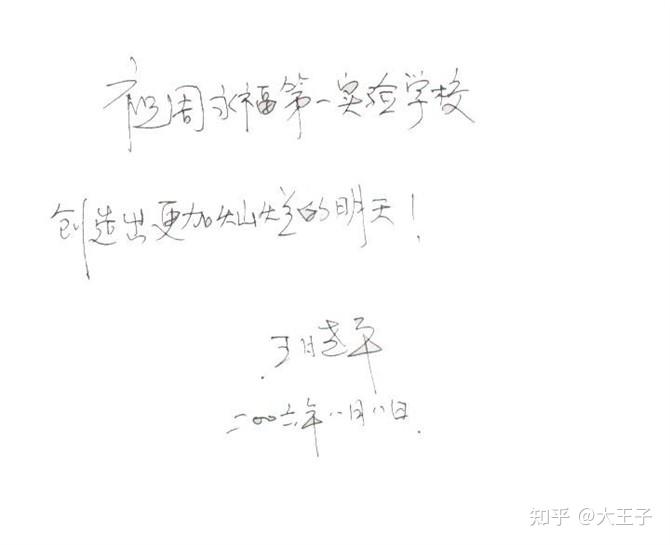 祝周永福第一实验学校
创造出更加灿烂的明天！
王晓平
二〇〇六年八月八日.
知乎 @大王子